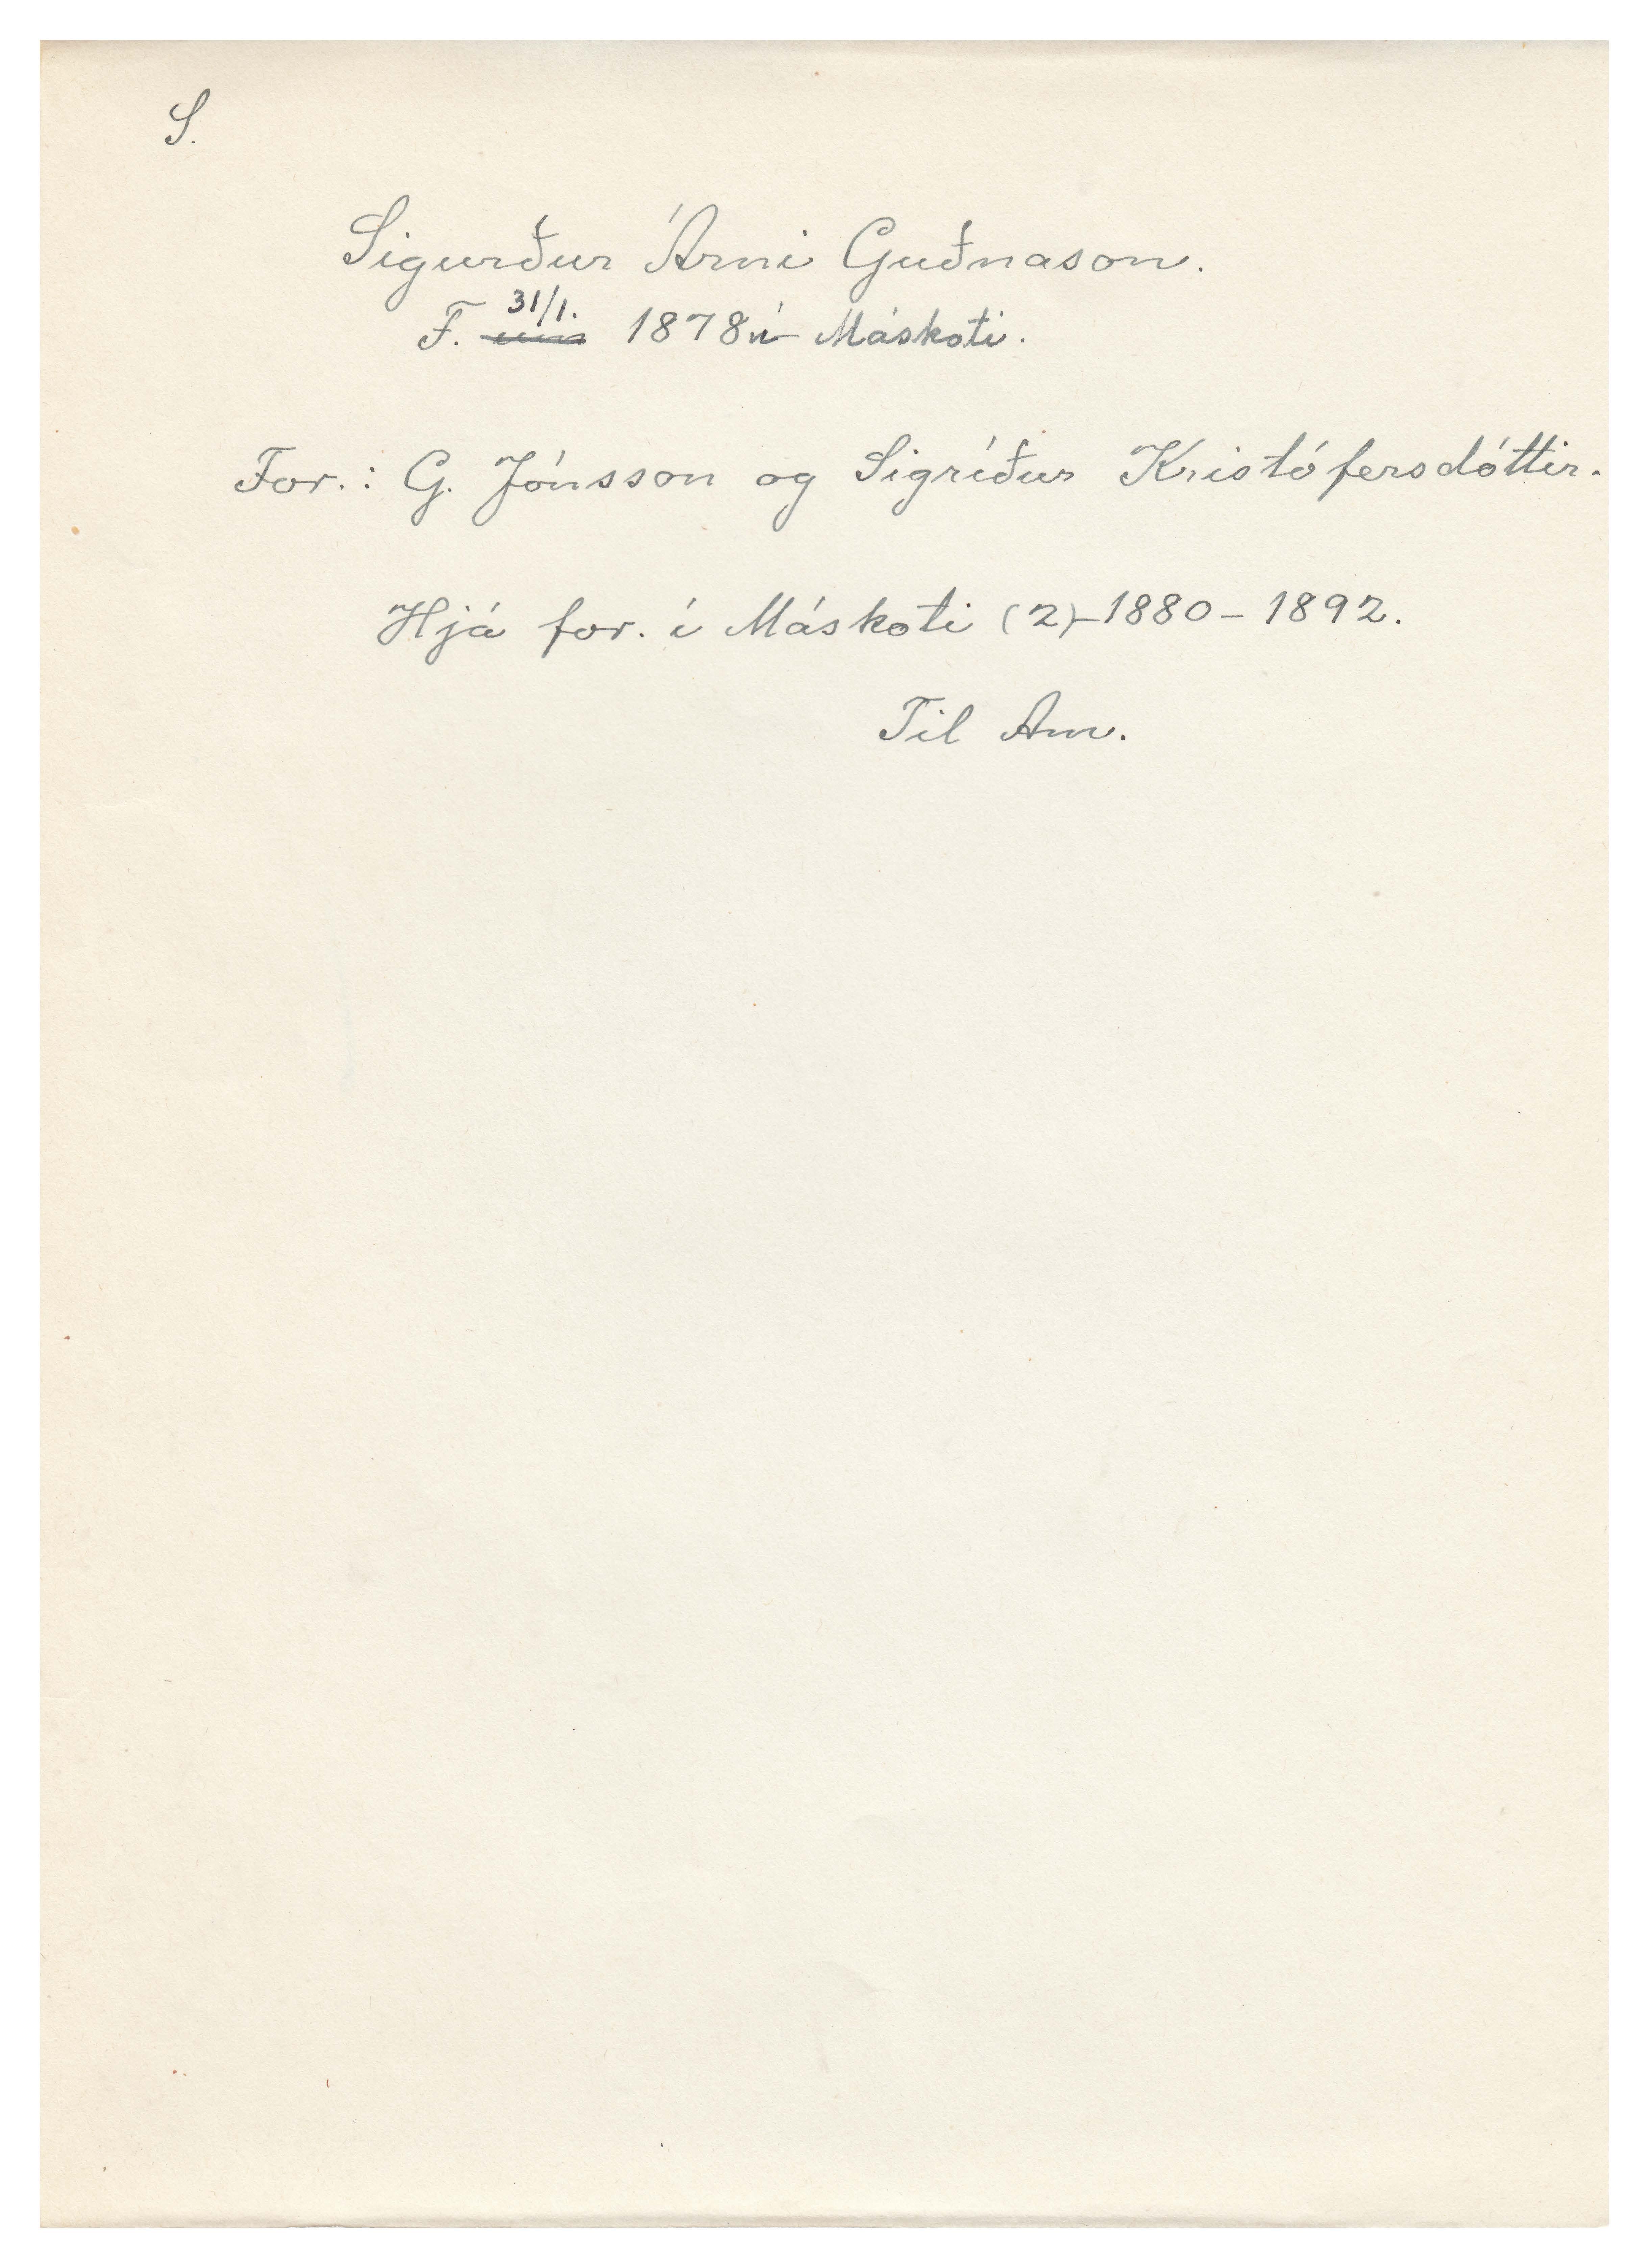 S.
Sigurður Árni Guðnason.
F. 31/1. 1878 í Máskoti.
For.: G. Jónsson og Sigríður Kristófersdóttir.
Hjá for. í Máskoti (2) - 1880 - 1892.
Til Am.